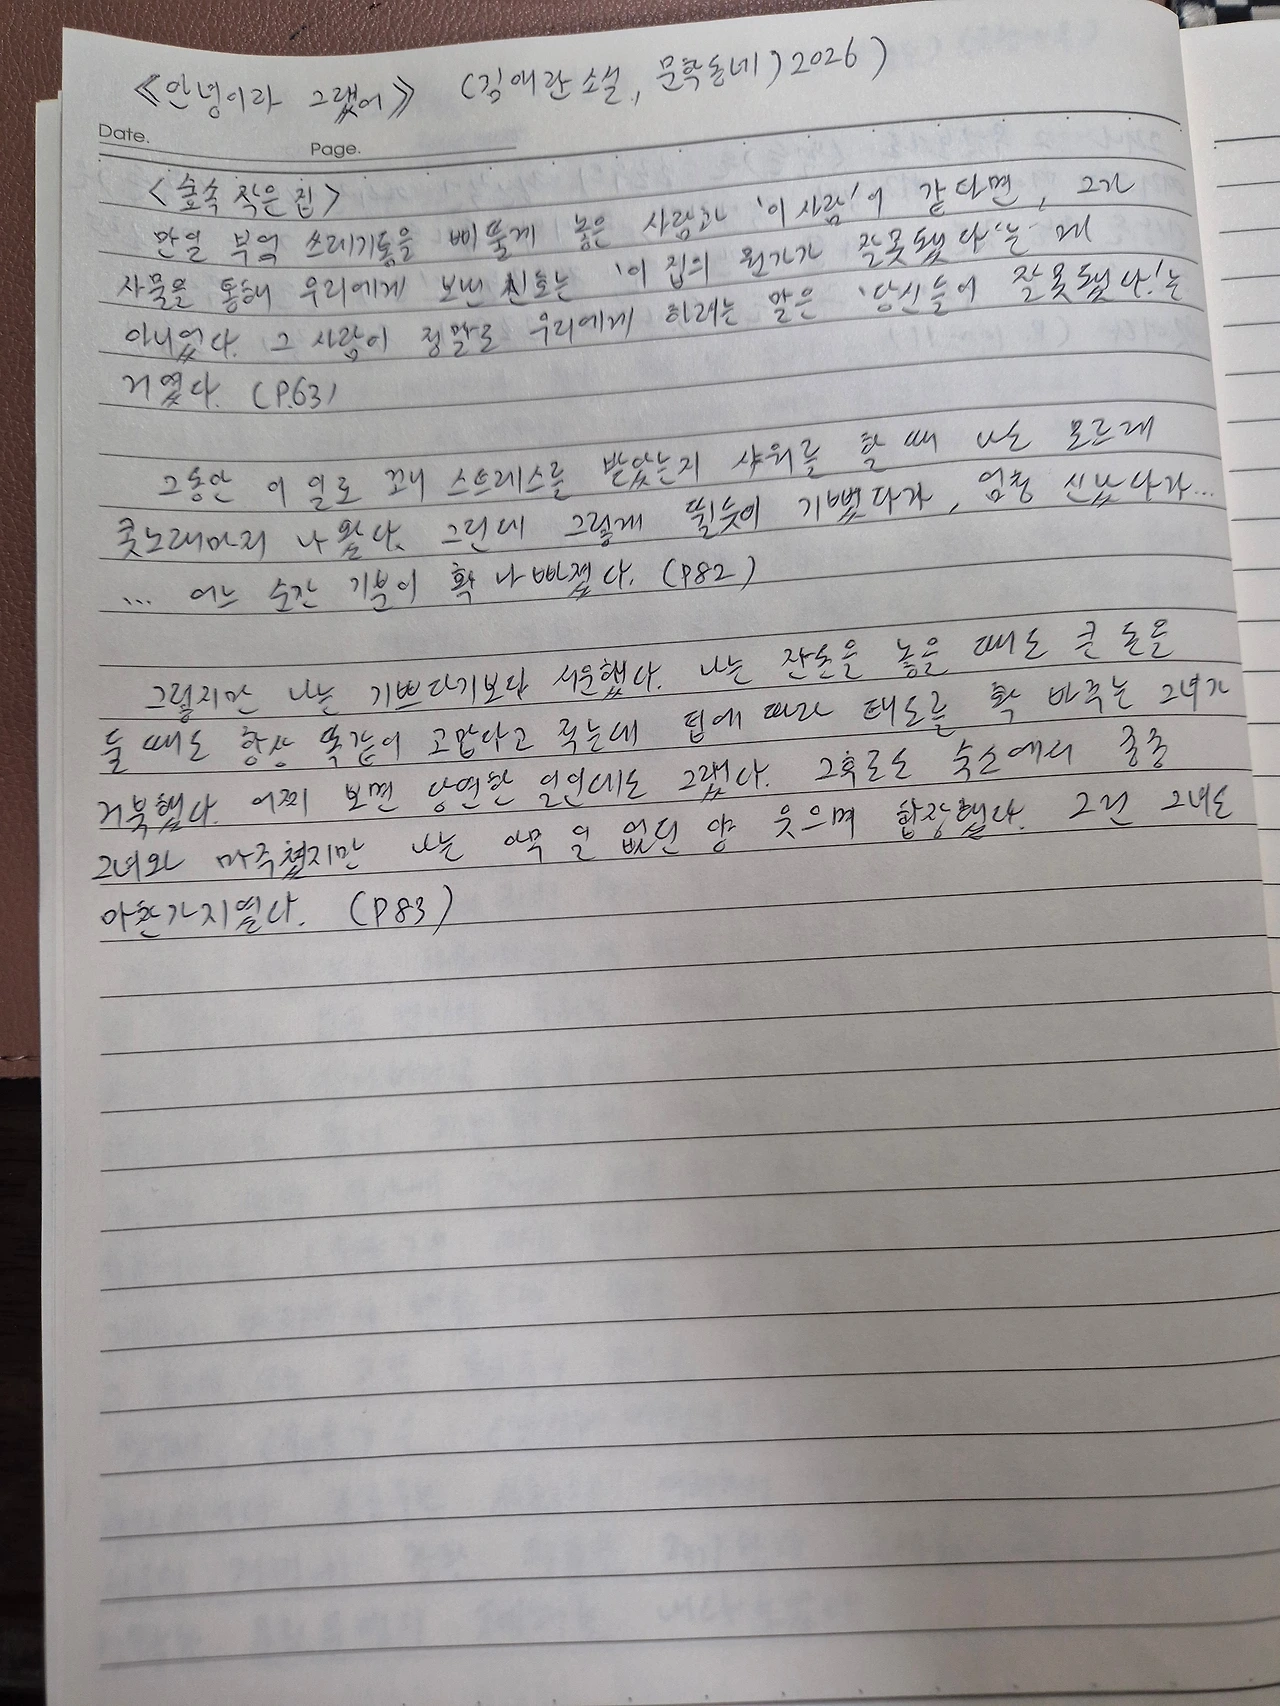 《안녕이라 그랬어》 (김애란 소설, 문학동네, 2026)
Date.
Page.
<숲속 작은 집>
만일 부엌 쓰레기통을 삐뚤게 놓은 사람과 '이 사람'이 같다면, 그가
사물을 통해 우리에게 보낸 신호는 '이 집의 뭔가가 잘못됐다'는 게
아니었다. 그 사람이 정말로 우리에게 하려는 말은 '당신들이 잘못됐다!'는
거였다. (P.63)
그동안 이 일로 꽤 스트레스를 받았는지 샤워를 할 때 나도 모르게
콧노래마저 나왔다. 그런데 그렇게 뛸듯이 기뻤다가, 엄청 신났다가...
... 어느 순간 기분이 확 나빠졌다. (P82)
그렇지만 나는 기쁘다기보다 서운했다. 나는 잔돈을 놓을 때도 큰 돈을
둘 때도 항상 똑같이 고맙다고 적는데 팁에 따라 태도를 확 바꾸는 그녀가
거북했다. 어찌 보면 당연한 일인데도 그랬다. 그후로도 숙소에서 종종
그녀와 마주쳤지만 나는 아무 일 없던 양 웃으며 합장했다. 그건 그녀도
마찬가지였다. (P83)